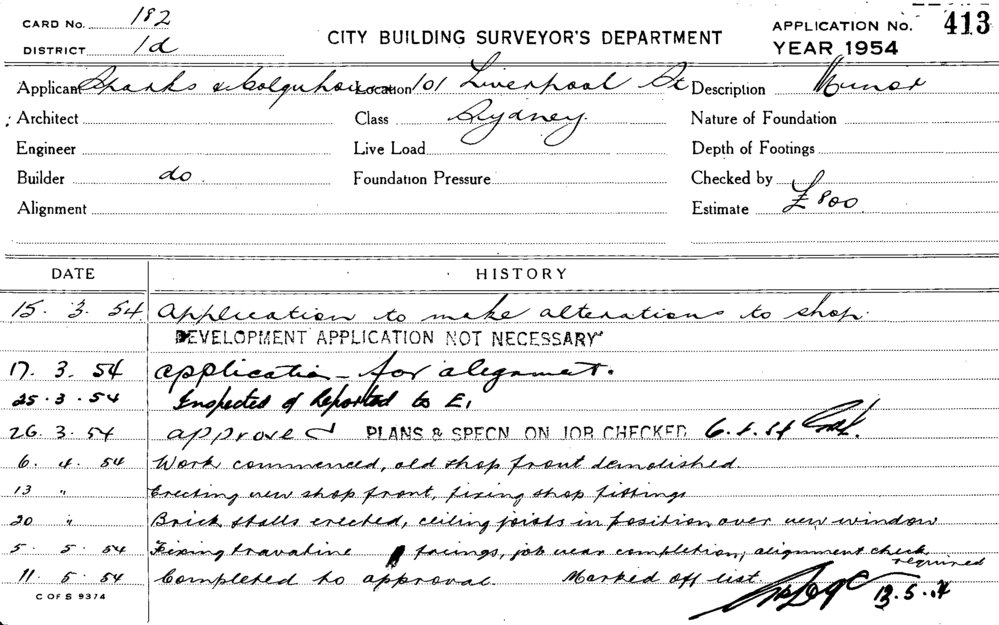 CARD NO. 182
CITY BUILDING SURVEYOR'S DEPARTMENT
APPLICATION NO. 413
DISTRICT 1d
YEAR 1954
Applicant Sharks & Colquhoun Location 101 Liverpool St Description Minor
Architect Class Sydney Nature of Foundation
Engineer Live Load Depth of Footings
Builder do. Foundation Pressure Checked by
Alignment Estimate £800
DATE HISTORY
15. 3. 54 Application to make alterations to shop.
DEVELOPMENT APPLICATION NOT NECESSARY
17. 3. 54 application for alignment.
25. 3. 54 Inspected & Reported to E,
26. 3. 54 approved PLANS & SPECN ON JOB CHECKED 6.4.54
6. 4. 54 Work commenced, old shop front demolished
13 " Erecting new shop front, fixing shop fittings
20 " Brick stalls erected, ceiling joists in position over new window
5. 5. 54 Fixing travatine facings, job near completion, alignment check required
11. 5. 54 Completed to approval. Marked off list
13.5.54
C OF S 9374